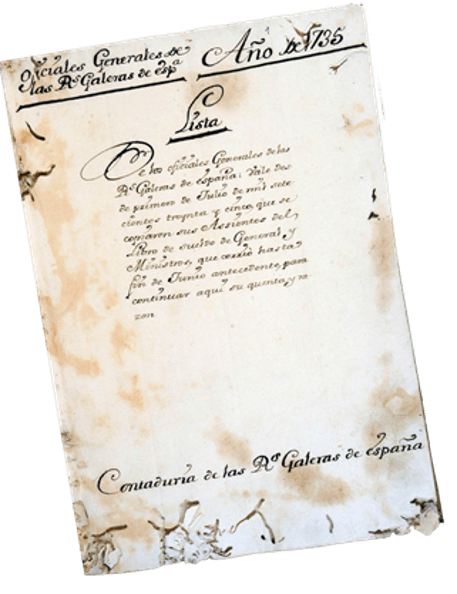 Oficiales Generales de
las Rs Galeras de espa
Año de 1735
Lista
De los oficiales Generales de las
Rs Galeras de españa: Vale des-
de primero de Julio de mil sete
cientos treynta y cinco, que se
copiaron sus Assientos del
Libro de sueldo de General y
Ministros, que corrio hasta
fin de Junio antecedente, para
continuar aqui su quenta, y ra-
zon
Contaduria de las Rs Galeras de españa